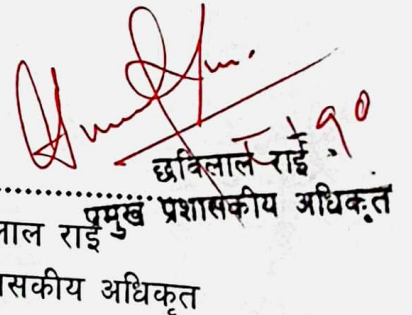 छविलाल राई
प्रमुख प्रशासकीय अधिकृत
लाल राई
सकीय अधिकृत